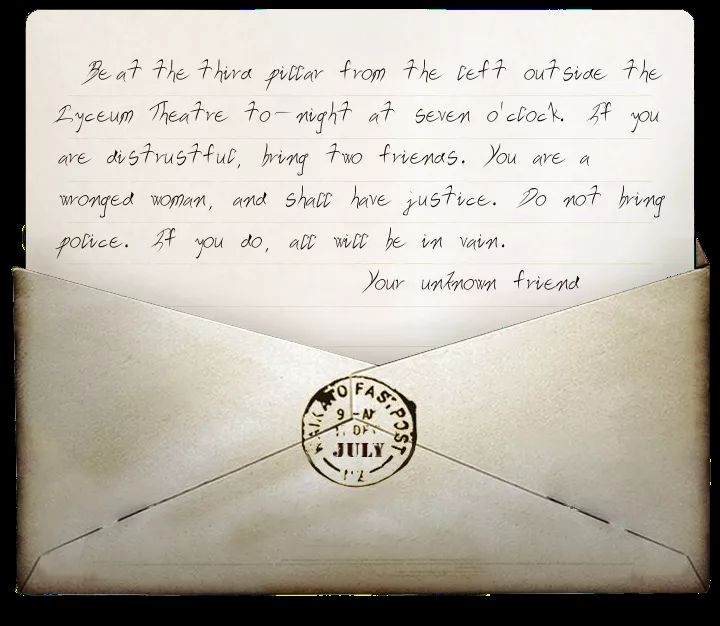 Be at the third pillar from the left outside the
Lyceum Theatre to-night at seven o'clock. If you
are distrustful, bring two friends. You are a
wronged woman, and shall have justice. Do not bring
police. If you do, all will be in vain.
Your unknown friend
FAST POST
9 - AM
JULY